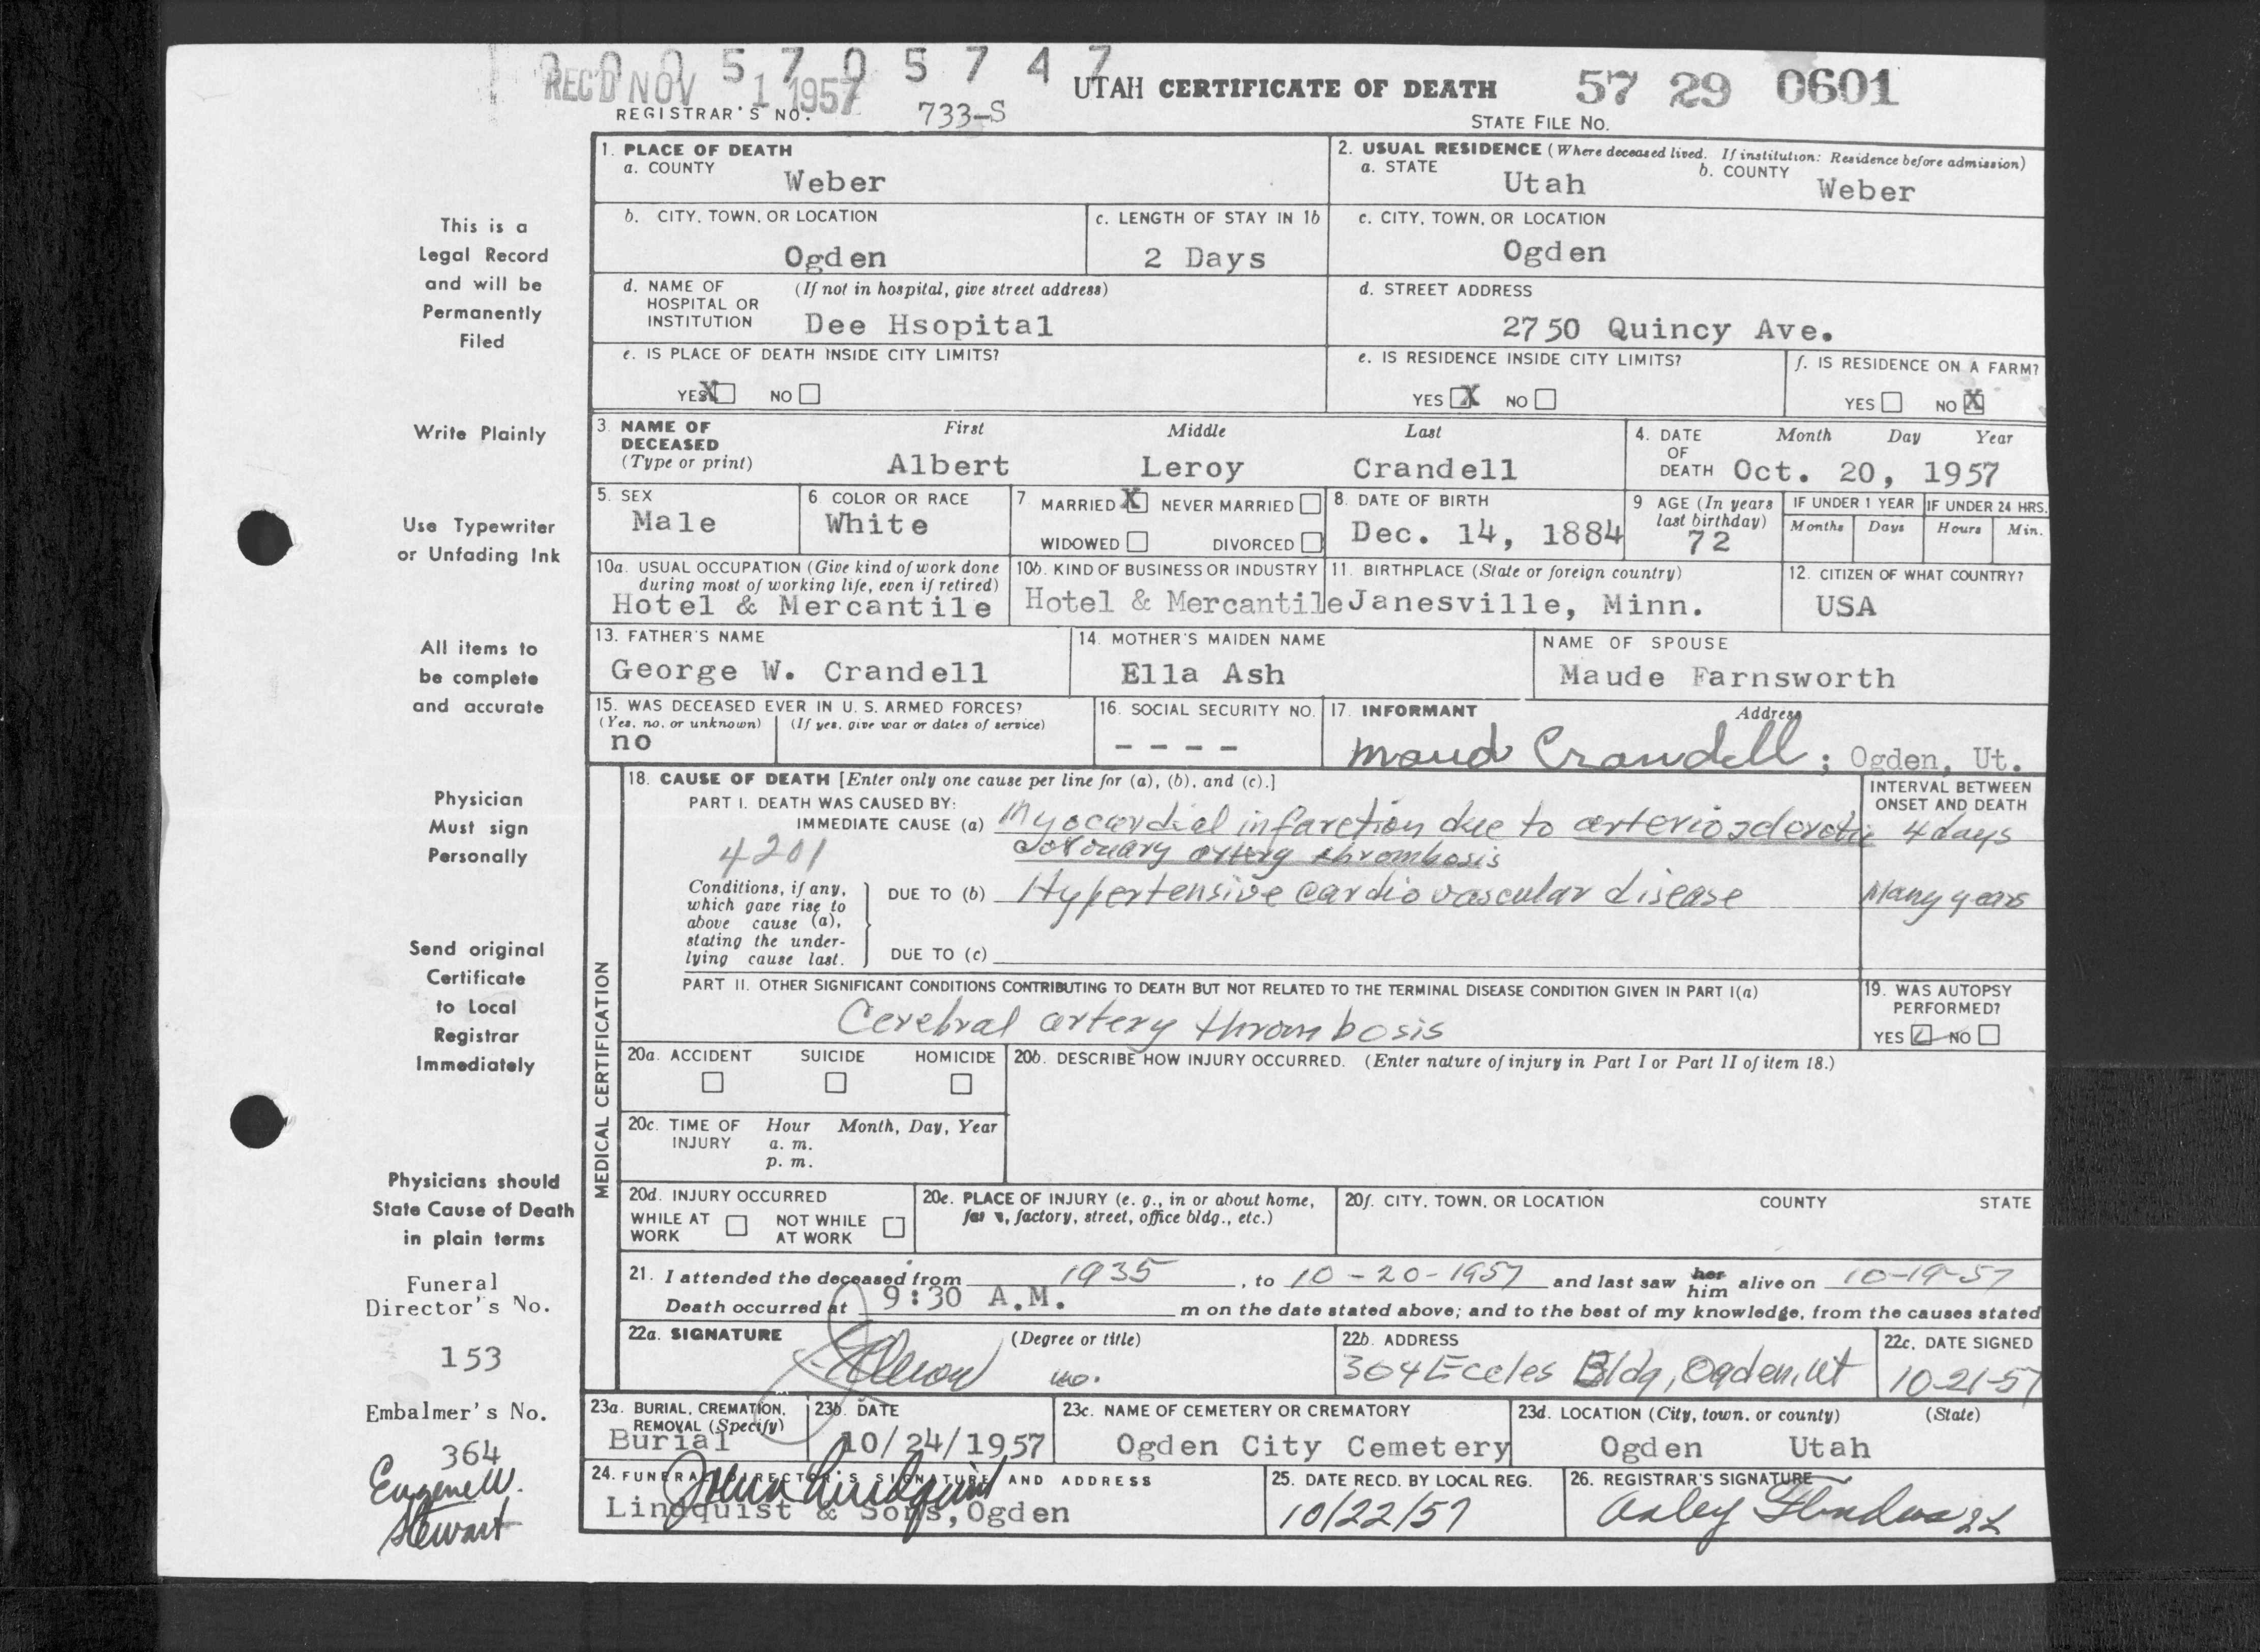 0 0 0 5 7 0 5 7 4 7
REC'D NOV 1 1957
UTAH CERTIFICATE OF DEATH
57 29 0601
REGISTRAR'S NO. 733-S
STATE FILE No.
1. PLACE OF DEATH
a. COUNTY
Weber
2. USUAL RESIDENCE (Where deceased lived. If institution: Residence before admission)
a. STATE Utah b. COUNTY Weber
b. CITY, TOWN, OR LOCATION
Ogden
c. LENGTH OF STAY IN 1b
2 Days
c. CITY, TOWN, OR LOCATION
Ogden
d. NAME OF HOSPITAL OR INSTITUTION (If not in hospital, give street address)
Dee Hsopital
d. STREET ADDRESS
2750 Quincy Ave.
e. IS PLACE OF DEATH INSIDE CITY LIMITS?
YES X NO
e. IS RESIDENCE INSIDE CITY LIMITS?
YES X NO
f. IS RESIDENCE ON A FARM?
YES NO X
3. NAME OF DECEASED (Type or print)
First Middle Last
Albert Leroy Crandell
4. DATE OF DEATH
Month Day Year
Oct. 20, 1957
5. SEX
Male
6. COLOR OR RACE
White
7. MARRIED X NEVER MARRIED
WIDOWED DIVORCED
8. DATE OF BIRTH
Dec. 14, 1884
9 AGE (In years last birthday)
72
IF UNDER 1 YEAR
Months Days
IF UNDER 24 HRS.
Hours Min.
10a. USUAL OCCUPATION (Give kind of work done during most of working life, even if retired)
Hotel & Mercantile
10b. KIND OF BUSINESS OR INDUSTRY
Hotel & Mercantile
11. BIRTHPLACE (State or foreign country)
Janesville, Minn.
12. CITIZEN OF WHAT COUNTRY?
USA
13. FATHER'S NAME
George W. Crandell
14. MOTHER'S MAIDEN NAME
Ella Ash
NAME OF SPOUSE
Maude Farnsworth
15. WAS DECEASED EVER IN U. S. ARMED FORCES?
(Yes, no, or unknown) (If yes, give war or dates of service)
no
16. SOCIAL SECURITY NO.
- - - -
17. INFORMANT Address
Maud Crandell; Ogden, Ut.
MEDICAL CERTIFICATION
18. CAUSE OF DEATH [Enter only one cause per line for (a), (b), and (c).]
INTERVAL BETWEEN ONSET AND DEATH
PART I. DEATH WAS CAUSED BY:
IMMEDIATE CAUSE (a) Myocardial infarction due to arteriosclerotic 4 days
4201 coronary artery thrombosis
Conditions, if any, which gave rise to above cause (a), stating the underlying cause last.
DUE TO (b) Hypertensive cardiovascular disease Many years
DUE TO (c)
PART II. OTHER SIGNIFICANT CONDITIONS CONTRIBUTING TO DEATH BUT NOT RELATED TO THE TERMINAL DISEASE CONDITION GIVEN IN PART I(a)
Cerebral artery thrombosis
19. WAS AUTOPSY PERFORMED?
YES NO
20a. ACCIDENT SUICIDE HOMICIDE
20b. DESCRIBE HOW INJURY OCCURRED. (Enter nature of injury in Part I or Part II of item 18.)
20c. TIME OF INJURY Hour Month, Day, Year
a. m.
p. m.
20d. INJURY OCCURRED
WHILE AT WORK NOT WHILE AT WORK
20e. PLACE OF INJURY (e. g., in or about home, farm, factory, street, office bldg., etc.)
20f. CITY, TOWN, OR LOCATION COUNTY STATE
21. I attended the deceased from 1935, to 10-20-1957 and last saw her him alive on 10-19-57
Death occurred at 9:30 A.M. m on the date stated above; and to the best of my knowledge, from the causes stated
22a. SIGNATURE (Degree or title)
MD.
22b. ADDRESS
304 Eccles Bldg, Ogden, Ut
22c. DATE SIGNED
10-21-57
23a. BURIAL, CREMATION, REMOVAL (Specify)
Burial
23b. DATE
10/24/1957
23c. NAME OF CEMETERY OR CREMATORY
Ogden City Cemetery
23d. LOCATION (City, town, or county) (State)
Ogden Utah
24. FUNERAL DIRECTOR'S SIGNATURE AND ADDRESS
John Lindquist
Lindquist & Sons, Ogden
25. DATE RECD. BY LOCAL REG.
10/22/57
26. REGISTRAR'S SIGNATURE
This is a
Legal Record
and will be
Permanently
Filed
Write Plainly
Use Typewriter
or Unfading Ink
All items to
be complete
and accurate
Physician
Must sign
Personally
Send original
Certificate
to Local
Registrar
Immediately
Physicians should
State Cause of Death
in plain terms
Funeral
Director's No.
153
Embalmer's No.
364
Eugene W.
Stewart